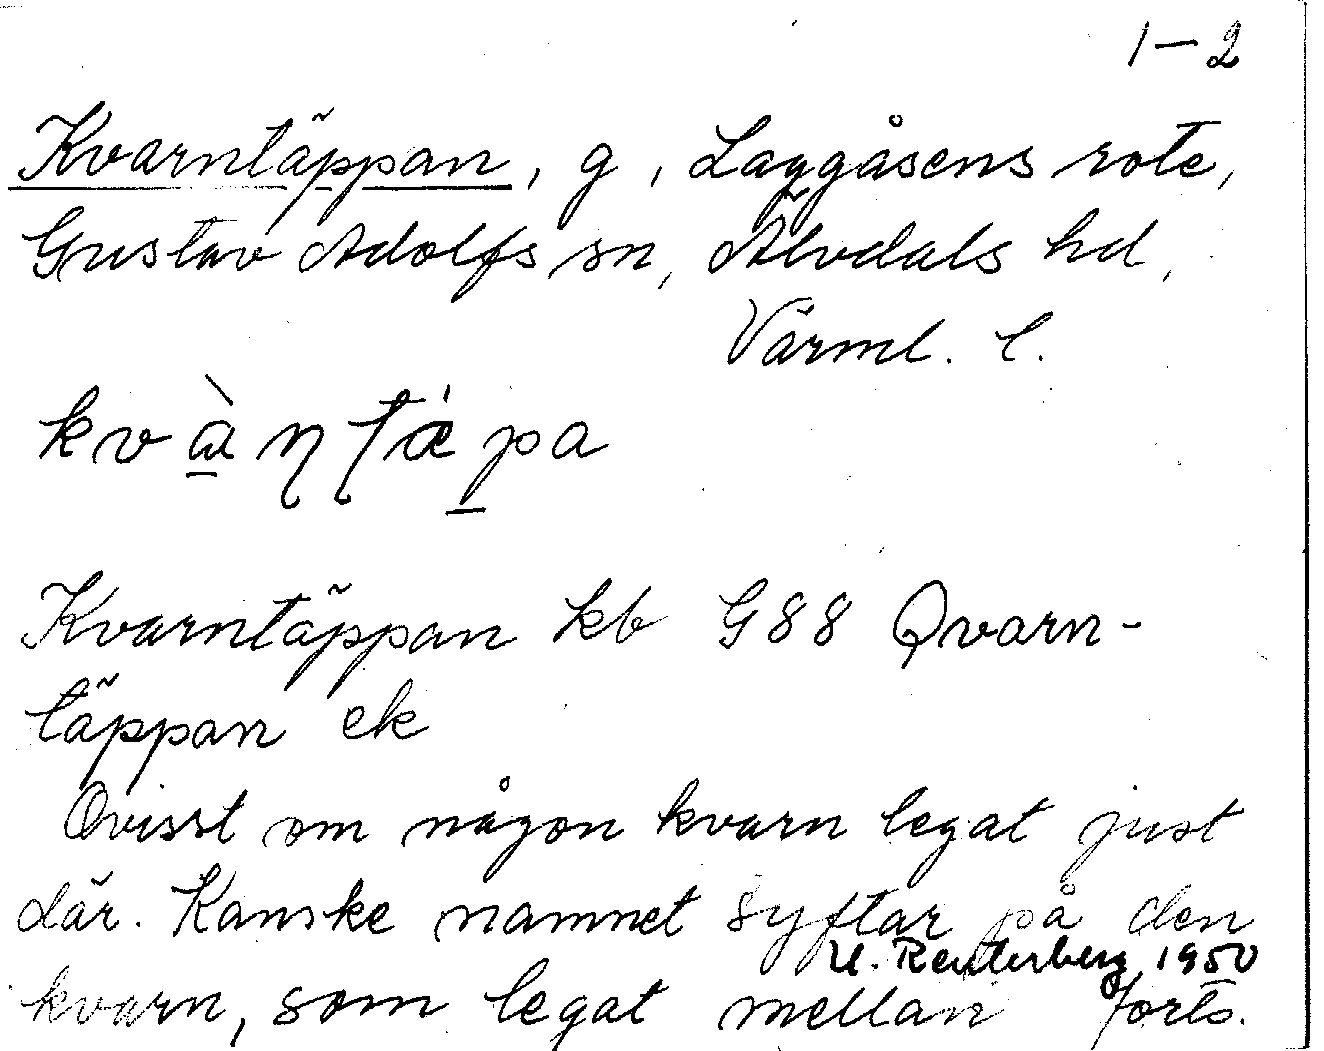 1-2
Kvarntäppan, g, Laggåsens rote,
Gustav Adolfs sn, Älvdals hd,
Värml. l.
Kvarntäppan kb G88 Qvarn-
täppan ek
Ovisst om någon kvarn legat just
där. Kanske namnet syftar på den
U. Reuterberg 1950
kvarn, som legat mellan forts.